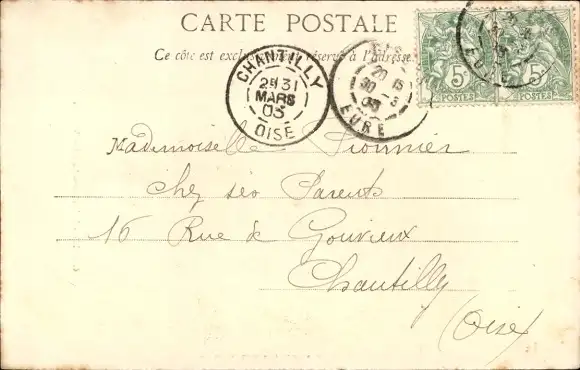 CARTE POSTALE
Ce côté est exclusivement réservé à l'adresse
CHANTILLY
2E 31
MARS
03
OISE
20
30 -3
03
EURE
5c
POSTES
5c
POSTES
EURE
Mademoiselle Pionnier
Chez ses Parents
16 Rue de Gouvieux
Chantilly
(Oise)